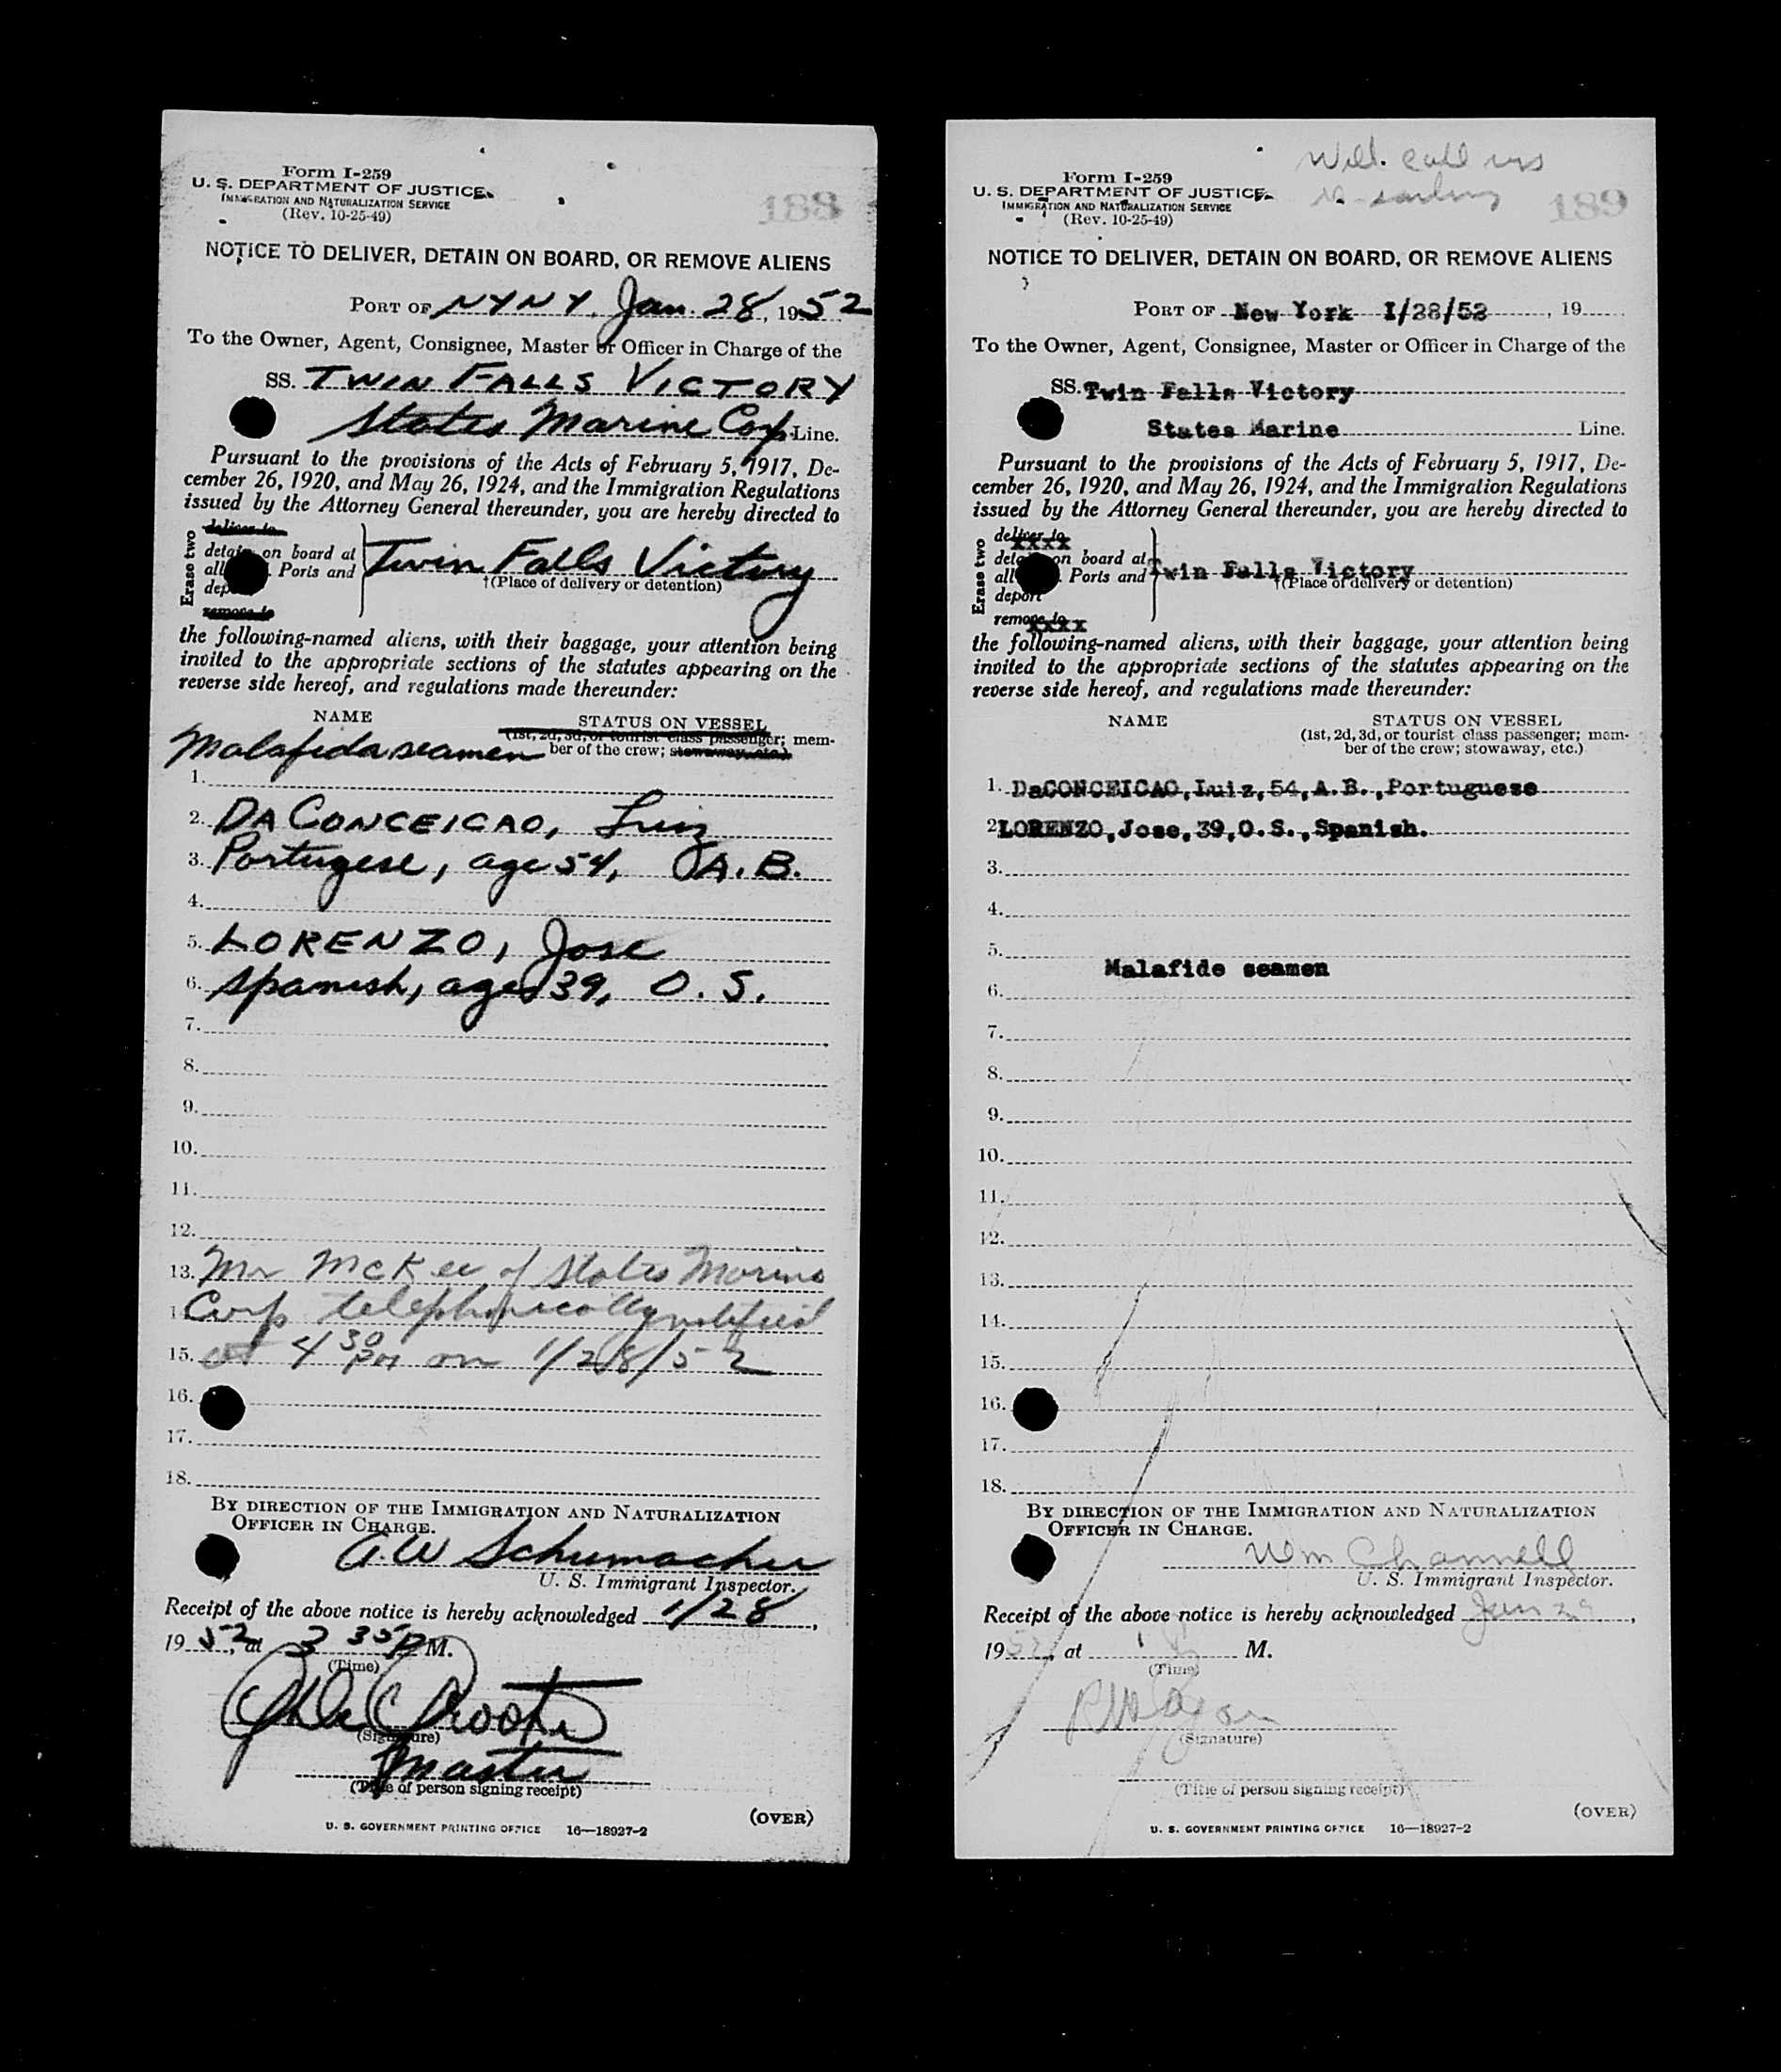 Form I-259
U. S. DEPARTMENT OF JUSTICE
IMMIGRATION AND NATURALIZATION SERVICE
(Rev. 10-25-49)
188
NOTICE TO DELIVER, DETAIN ON BOARD, OR REMOVE ALIENS
PORT OF NYNY, Jan. 28, 1952
To the Owner, Agent, Consignee, Master or Officer in Charge of the
SS. TWIN FALLS VICTORY
States Marine Corp Line.
Pursuant to the provisions of the Acts of February 5, 1917, De-
cember 26, 1920, and May 26, 1924, and the Immigration Regulations
issued by the Attorney General thereunder, you are hereby directed to
Erase two
deliver to
detain on board at
all Ports and
deport
remove to
Twin Falls Victory
†(Place of delivery or detention)
the following-named aliens, with their baggage, your attention being
invited to the appropriate sections of the statutes appearing on the
reverse side hereof, and regulations made thereunder:
NAME STATUS ON VESSEL
(1st, 2d, 3d, or tourist class passenger; mem-
ber of the crew; stowaway, etc.)
Malafida seamen
1.
2. DA CONCEICAO, Luiz
3. Portugese, age 54, A.B.
4.
5. LORENZO, Jose
6. Spanish, age 39, O. S.
7.
8.
9.
10.
11.
12.
13. Mr McKee of States Marine
14. Corp telephonically notified
15. at 4 30 PM on 1/28/52
16.
17.
18.
BY DIRECTION OF THE IMMIGRATION AND NATURALIZATION
OFFICER IN CHARGE.
A.W Schumacher
U. S. Immigrant Inspector.
Receipt of the above notice is hereby acknowledged 1/28,
1952, at 3 35 P M.
(Time)
(Signature)
Master
(Title of person signing receipt)
(OVER)
U. S. GOVERNMENT PRINTING OFFICE 16—18927-2
Will call ins
Form I-259
U. S. DEPARTMENT OF JUSTICE
IMMIGRATION AND NATURALIZATION SERVICE
(Rev. 10-25-49)
sailing
189
NOTICE TO DELIVER, DETAIN ON BOARD, OR REMOVE ALIENS
PORT OF New York I/28/52, 19
To the Owner, Agent, Consignee, Master or Officer in Charge of the
SS. Twin Falls Victory
States Marine Line.
Pursuant to the provisions of the Acts of February 5, 1917, De-
cember 26, 1920, and May 26, 1924, and the Immigration Regulations
issued by the Attorney General thereunder, you are hereby directed to
Erase two
deliver to xxxx
detain on board at
all Ports and
deport
remove to xxxx
Twin Falls Victory
†(Place of delivery or detention)
the following-named aliens, with their baggage, your attention being
invited to the appropriate sections of the statutes appearing on the
reverse side hereof, and regulations made thereunder:
NAME STATUS ON VESSEL
(1st, 2d, 3d, or tourist class passenger; mem-
ber of the crew; stowaway, etc.)
1. DaCONCEICAO, Luiz, 54, A.B., Portuguese
2. LORENZO, Jose, 39, O.S., Spanish.
3.
4.
5.
Malafide seamen
6.
7.
8.
9.
10.
11.
12.
13.
14.
15.
16.
17.
18.
BY DIRECTION OF THE IMMIGRATION AND NATURALIZATION
OFFICER IN CHARGE.
Wm Channell
U. S. Immigrant Inspector.
Receipt of the above notice is hereby acknowledged Jan 29,
1952, at M.
(Time)
(Signature)
(Title of person signing receipt)
(OVER)
U. S. GOVERNMENT PRINTING OFFICE 16—18927-2